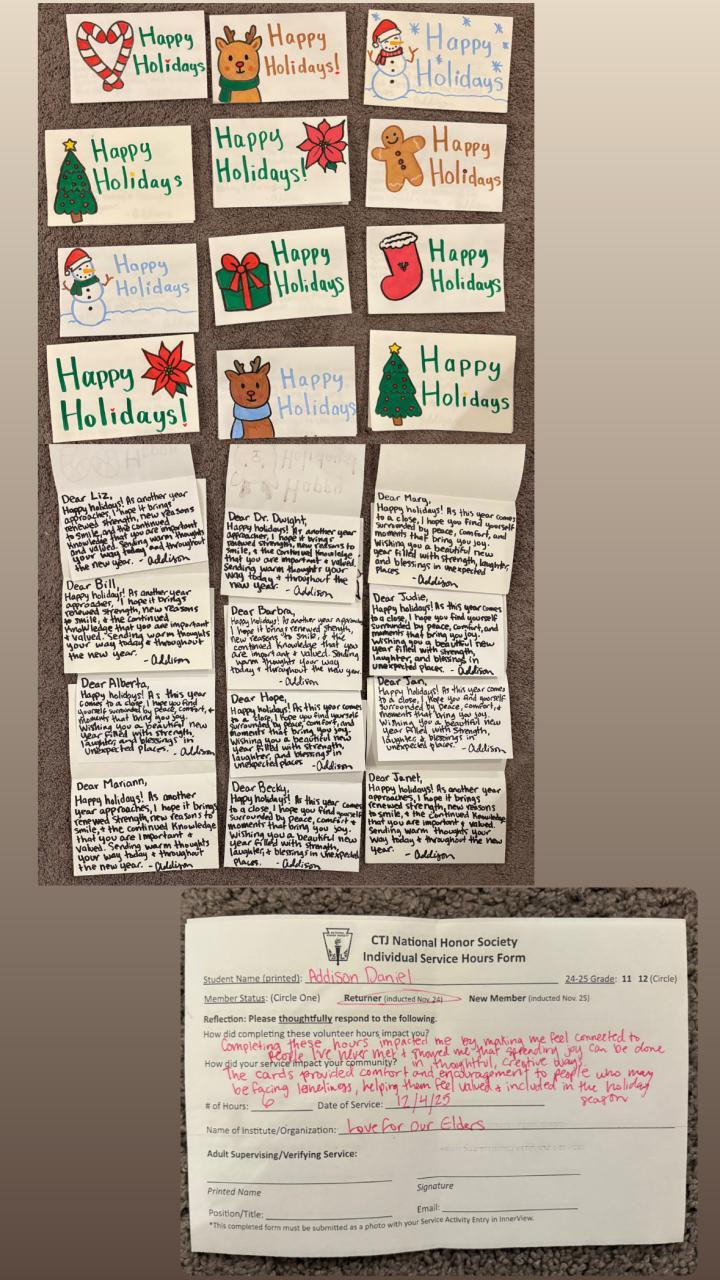 Happy
Holidays
Happy
Holidays!
Happy
Holidays
Happy
Holidays
Happy
Holidays!
Happy
Holidays
Happy
Holidays
Happy
Holidays
Happy
Holidays
Happy
Holidays!
Happy
Holidays
Happy
Holidays
Dear Liz,
Happy holidays! As another year
approaches, I hope it brings
renewed strength, new reasons
to smile, and the continued
knowledge that you are important
and valued. Sending warm thoughts
your way today and throughout
the new year. - Addison
Dear Dr. Dwight,
Happy holidays! As another year
approaches, I hope it brings
renewed strength, new reasons to
smile, & the continued knowledge
that you are important & valued.
Sending warm thoughts your
way today & throughout the
new year. - Addison
Dear Mary,
Happy holidays! As this year comes
to a close, I hope you find yourself
surrounded by peace, comfort, and
moments that bring you joy.
Wishing you a beautiful new
year filled with strength, laughter,
and blessings in unexpected
places.
- Addison
Dear Bill,
Happy holidays! As another year
approaches, I hope it brings
renewed strength, new reasons
to smile, & the continued
knowledge that you are important
& valued. Sending warm thoughts
your way today & throughout
the new year. - Addison
Dear Barbra,
Happy holidays! As another year approaches,
I hope it brings renewed strength,
new reasons to smile, & the
continued knowledge that you
are important & valued. Sending
warm thoughts your way
today & throughout the new year.
- Addison
Dear Judie,
Happy holidays! As this year comes
to a close, I hope you find yourself
surrounded by peace, comfort, and
moments that bring you joy.
Wishing you a beautiful new
year filled with strength,
laughter, and blessings in
unexpected places. - Addison
Dear Alberta,
Happy holidays! As this year
comes to a close, I hope you find
yourself surrounded by peace, comfort, &
moments that bring you joy.
Wishing you a beautiful new
year filled with strength,
laughter, and blessings in
unexpected places. - Addison
Dear Hope,
Happy holidays! As this year comes
to a close, I hope you find yourself
surrounded by peace, comfort, and
moments that bring you joy.
Wishing you a beautiful new
year filled with strength,
laughter, and blessings in
unexpected places - Addison
Dear Jan,
Happy holidays! As this year comes
to a close, I hope you find yourself
surrounded by peace, comfort, &
moments that bring you joy.
Wishing you a beautiful new
year filled with strength,
laughter & blessings in
unexpected places. - Addison
Dear Mariann,
Happy holidays! As another
year approaches, I hope it brings
renewed strength, new reasons to
smile, & the continued knowledge
that you are important &
valued. Sending warm thoughts
your way today & throughout
the new year. - Addison
Dear Becky,
Happy holidays! As this year comes
to a close, I hope you find yourself
surrounded by peace, comfort &
moments that bring you joy.
Wishing you a beautiful new
year filled with strength,
laughter, & blessings in unexpected
places. - Addison
Dear Janet,
Happy holidays! As another year
approaches, I hope it brings
renewed strength, new reasons
to smile, & the continued knowledge
that you are important & valued.
Sending warm thoughts your
way today & throughout the new
year. - Addison
NATIONAL HONOR SOCIETY
CTJ National Honor Society
Individual Service Hours Form
Student Name (printed): Addison Daniel 24-25 Grade: 11 12 (Circle)
Member Status: (Circle One) Returner (inducted Nov. 24) New Member (inducted Nov. 25)
Reflection: Please thoughtfully respond to the following.
How did completing these volunteer hours impact you?
Completing these hours impacted me by making me feel connected to
people I've never met & showed me that spending joy can be done
How did your service impact your community? in thoughtful, creative ways.
The cards provided comfort and encouragement to people who may
be facing loneliness, helping them feel valued & included in the holiday
season
# of Hours: 6 Date of Service: 12/4/25
Name of Institute/Organization: Love For Our Elders
Adult Supervising/Verifying Service:
Printed Name Signature
Position/Title: Email:
*This completed form must be submitted as a photo with your Service Activity Entry in InnerView.